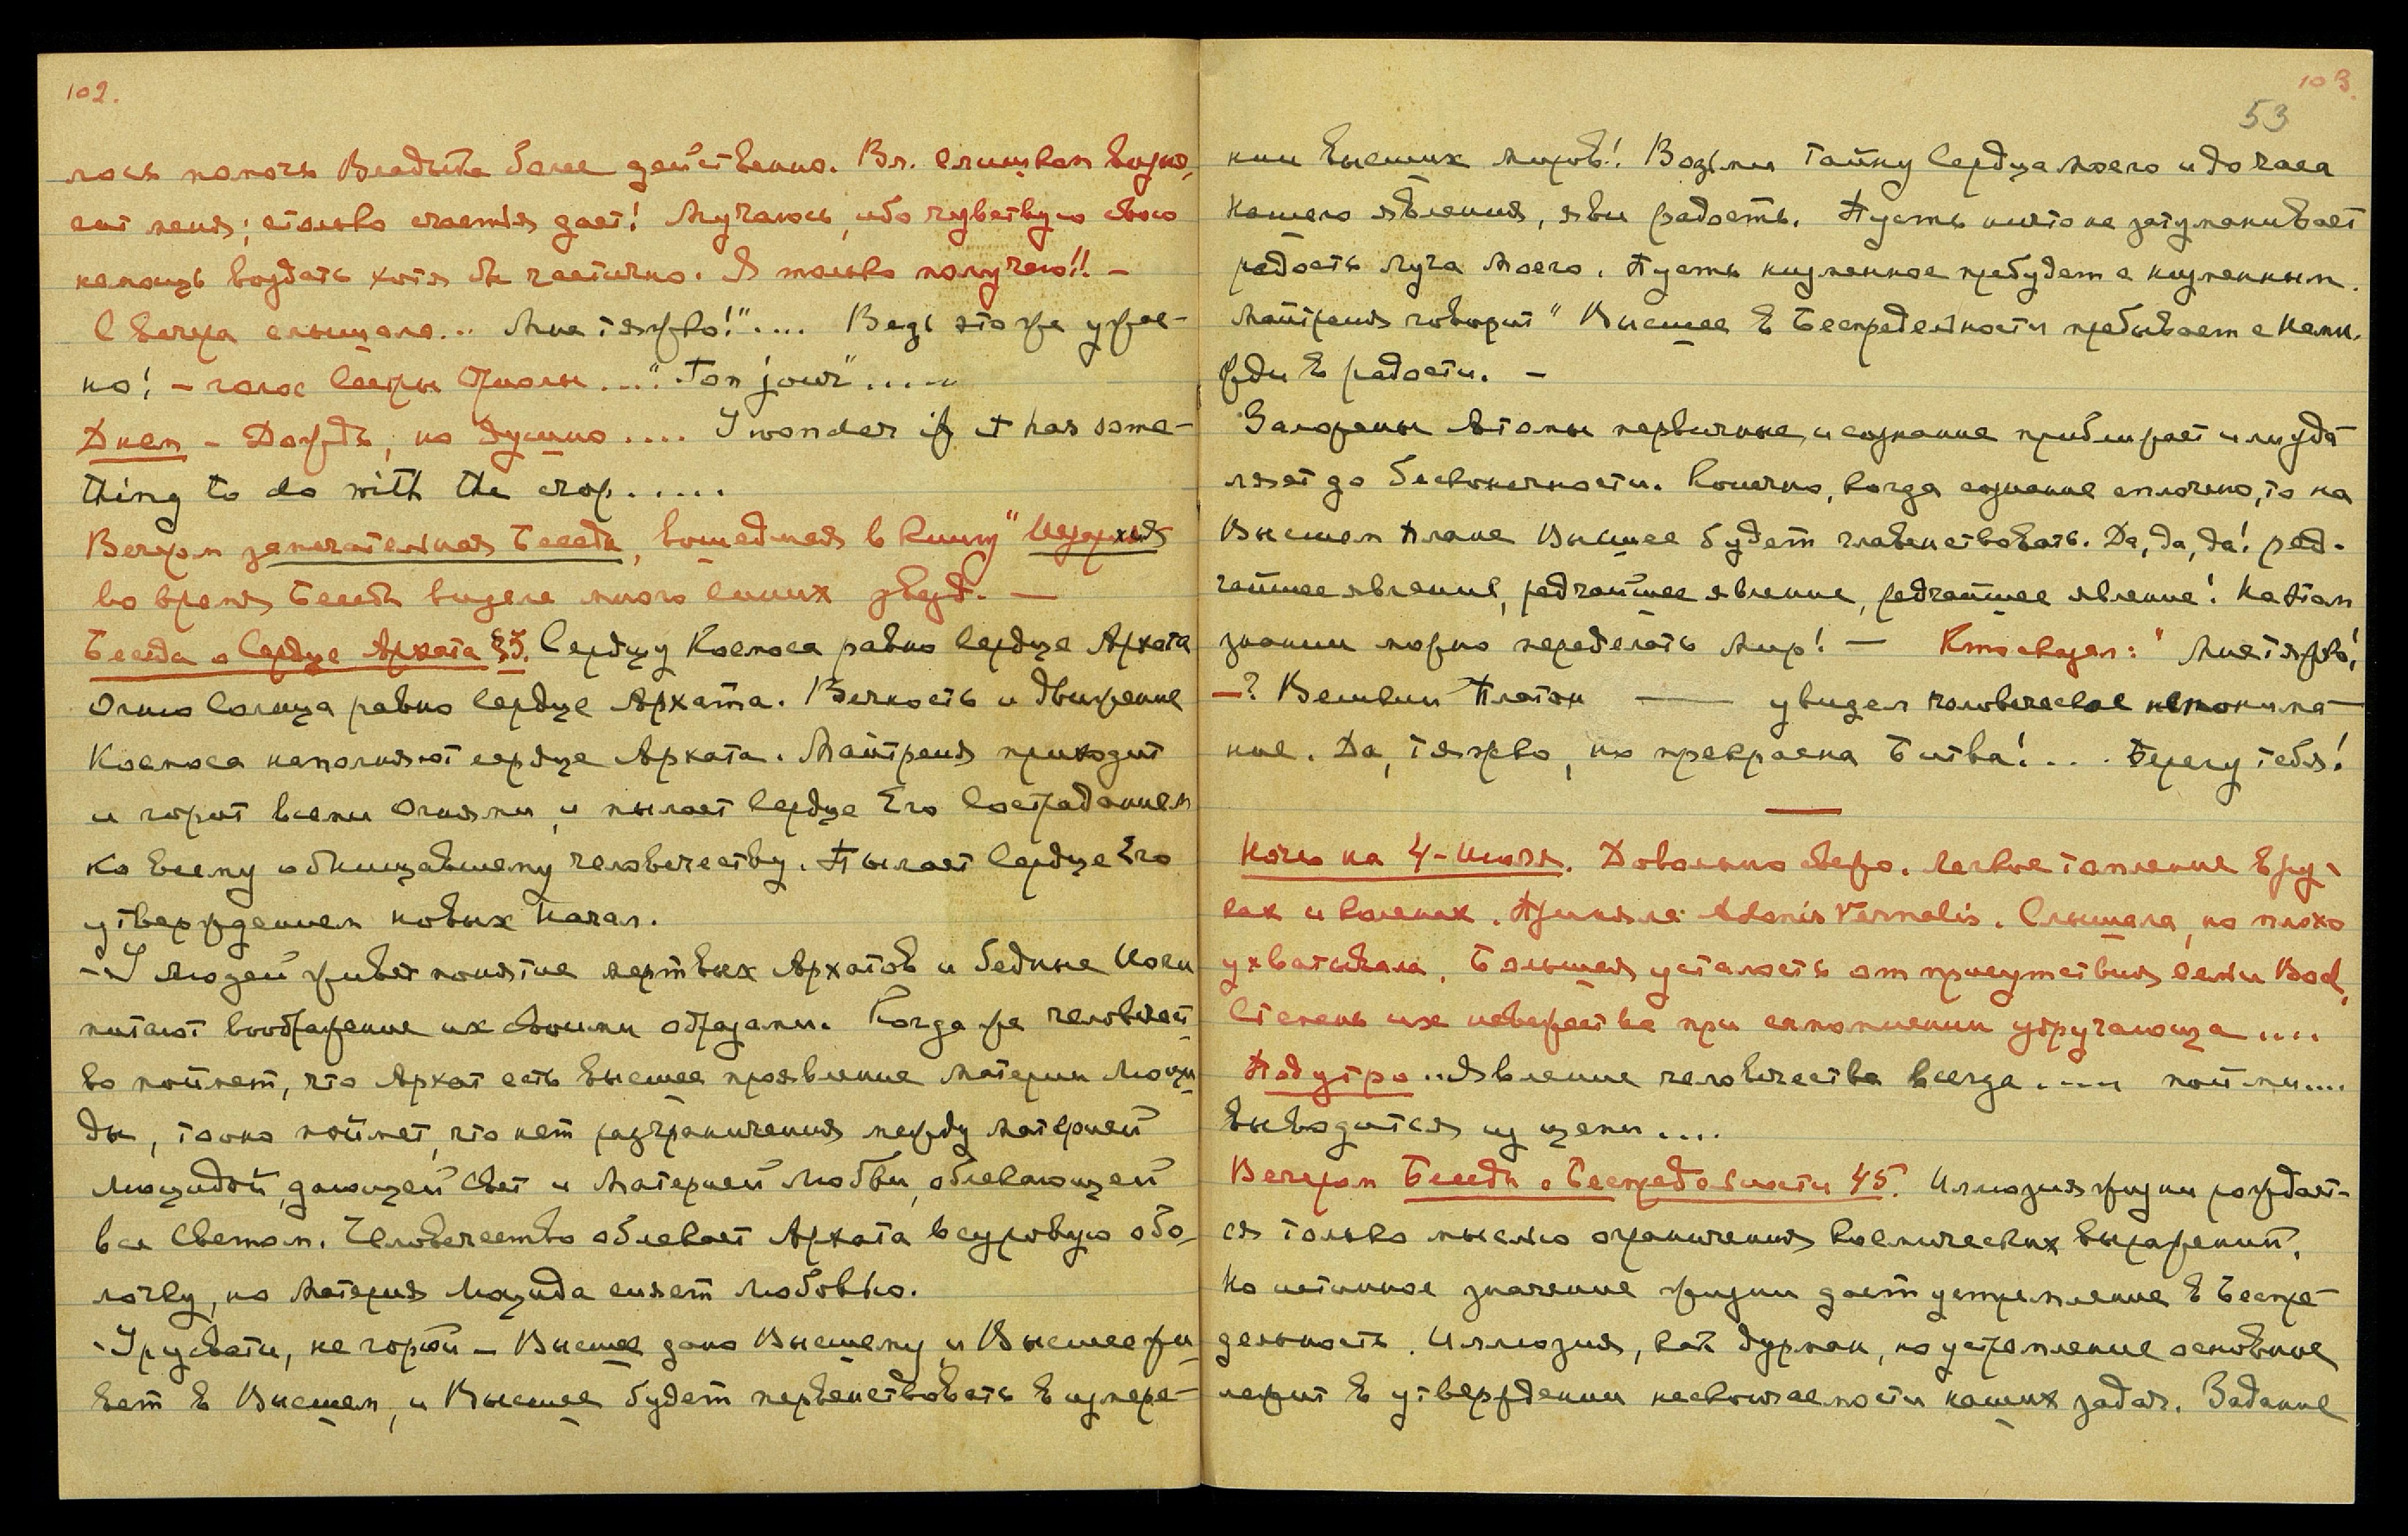 102.
лось помочь Владыке более действенно. Вл. слишком возно-
сит меня; столько счастья дает! Мучаюсь, ибо чувствую свою
немощь воздать хотя бы частично. Я только получаю!! –
С вечера слышала... Мне тяжко!".... Ведь это же ужас-
но! – голос Сестры Ориолы...." Ton jour".....
Днем – Дождь, но душно.... I wonder if it has some-
thing to do with the crop.....
Вечером замечательная Беседа, вошедшая в книгу "Иерархия
во время Беседы видела много синих звезд. —
Беседа о Сердце Архата §3. Сердцу Космоса равно сердце Архата
Огню Солнца равно сердце Архата. Вечность и движение
Космоса наполняют сердце Архата. Майтрейя приходит
и горит всеми огнями, и пылает Сердце Его состраданием
ко всему обнищавшему человечеству. Пылает Сердце Его
утверждением новых Начал.
– У людей живет понятие мертвых Архатов и бедные Йоги
питают воображение их своими образами. Когда же человечест-
во поймет, что Архат есть высшее проявление Материи Люци-
ды, то оно поймет, что нет разграничения между Материей
Люцидой, дающей Свет и Материей Любви, облекающей
все Светом. Человечество облекает Архата в суровую обо-
лочку, но Материя Люцида сияет любовью.
– Урусвати, не горюй – Высшее дано Высшему и Высшее жи-
вет в Высшем, и Высшее будет первенствовать в измере-
103.
53
нии высших миров! Возьми тайну Сердца моего и до часа
нашего явления, яви радость. Пусть ничто не затуманивает
радость Луча Моего. Пусть низменное пребудет с низменным.
Майтрейя говорит "Высшее в Беспредельности пребывает с Нами.
Жди в радости. –
Заложены Атомы первичные, и сознание приближает или уда-
ляет до бесконечности. Конечно, когда сознание сплочено, то на
Высшем плане Высшее будет главенствовать. Да, да, да! ред-
чайшее явление, редчайшее явление, редчайшее явление! На этом
знании можно переделать Мир! — Кто сказал: "Мне тяжко!
–? Великий Платон —— увидел человеческое непонима-
ние. Да, тяжко, но прекрасна Битва!... Берегу тебя!
Ночь на 4-Июля. Довольно свежо. Легкое томление в ру-
ках и коленах. Приняла Adonis Vernalis. Слышала, но плохо
ухватывала. Большая усталость от присутствия семьи Bod.
Степень их невежества при самомнении удручающа....
Под утро.. Явление человечества всегда..... пойми....
выводится из цепи....
Вечером Беседы о Беспредельности 45. Иллюзия жизни рождает-
ся только мыслью ограничения космических выражений.
Но истинное значение жизни дает устремление в Беспре-
дельность. Иллюзия, как дурман, но устремление основное
лежит в утверждении нескончаемости наших задач. Задание